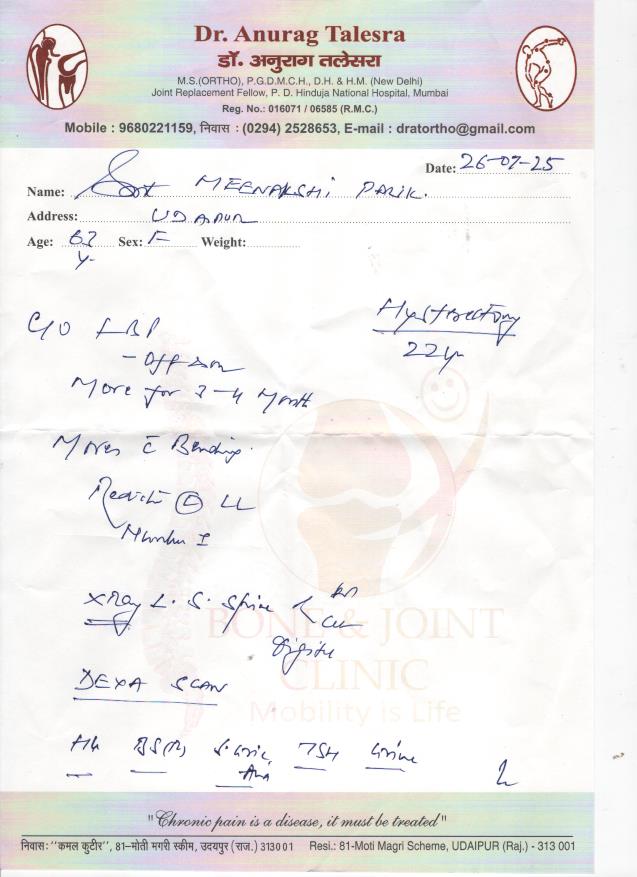 Dr. Anurag Talesra
डॉ. अनुराग तलेसरा
M.S.(ORTHO), P.G.D.M.C.H., D.H. & H.M. (New Delhi)
Joint Replacement Fellow, P. D. Hinduja National Hospital, Mumbai
Reg. No.: 016071 / 06585 (R.M.C.)
Mobile : 9680221159, निवास : (0294) 2528653, E-mail : dratortho@gmail.com
Date: 26-07-25
Name: Smt MEENAKSHI PARIK.
Address: UDAIPUR
Age: 62 y Sex: F Weight:
Hystrectomy
22 yr
C/O LBP
- Off & on
More for 3-4 Month
More c Bending.
L LL
Xray L. S. Spine
Digital
BONE & JOINT
CLINIC
Mobility is Life
DEXA SCAN
Hb BS(R) S. Uric TSH Urine
"Chronic pain is a disease, it must be treated"
निवास: "कमल कुटीर", 81-मोती मगरी स्कीम, उदयपुर (राज.) 313001 Resi.: 81-Moti Magri Scheme, UDAIPUR (Raj.) - 313 001